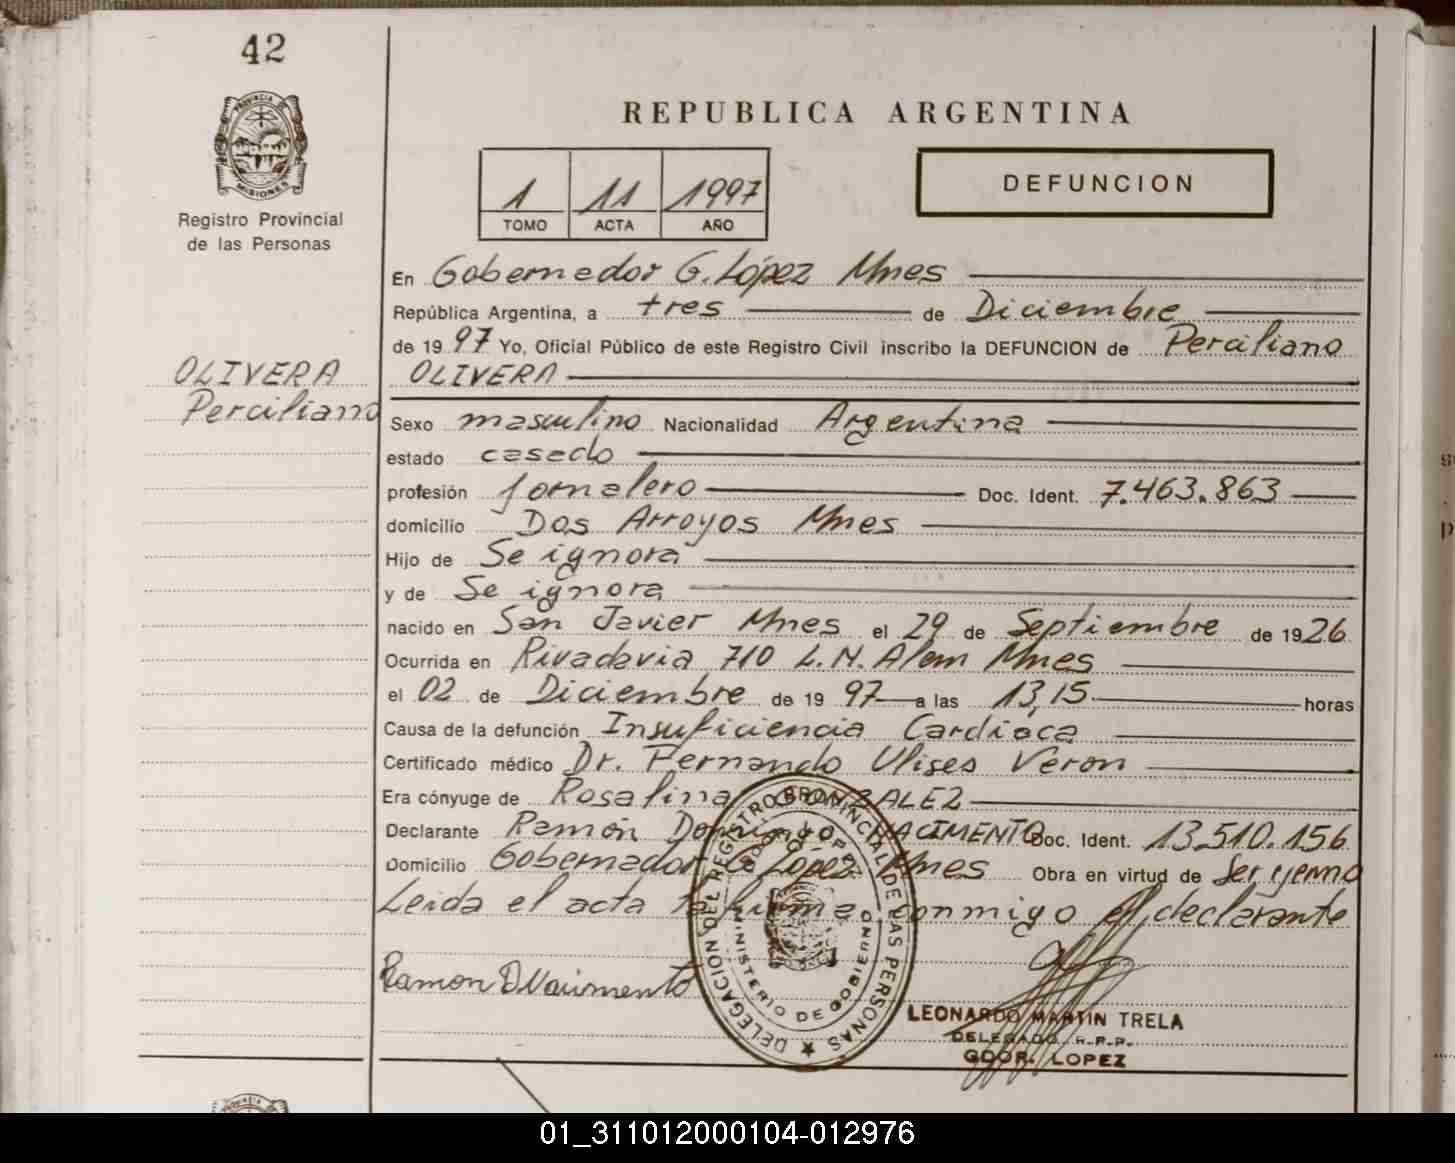 42
PROVINCIA DE
MISIONES
Registro Provincial
de las Personas
REPUBLICA ARGENTINA
1 11 1997
TOMO ACTA AÑO
DEFUNCION
En Gobernador G. López Mnes
República Argentina, a tres de Diciembre
de 1997 Yo, Oficial Público de este Registro Civil inscribo la DEFUNCION de Perciliano
OLIVERA
OLIVERA
Perciliano
Sexo masculino Nacionalidad Argentina
estado casado
profesión Jornalero Doc. Ident. 7.463.863
domicilio Dos Arroyos Mnes
Hijo de Se ignora
y de Se ignora
nacido en San Javier Mnes el 29 de Septiembre de 1926
Ocurrida en Rivadavia 710 L.N. Alem Mnes
el 02 de Diciembre de 1997 a las 13,15 horas
Causa de la defunción Insuficiencia Cardíaca
Certificado médico Dr. Fernando Ulises Veron
Era cónyuge de Rosalina GONZALEZ
Declarante Ramón Domingo NACIMENTO Doc. Ident. 13.510.156
Domicilio Gobernador G. López Mnes Obra en virtud de Ser yerno
Leida el acta la firma conmigo el declarante
Ramon D Nacimento
DELEGACION DEL REGISTRO PROVINCIAL DE LAS PERSONAS
GDOR. LOPEZ
MINISTERIO DE GOBIERNO
LEONARDO MARTIN TRELA
DELEGADO R.P.P.
GDOR. LOPEZ
01_311012000104-012976